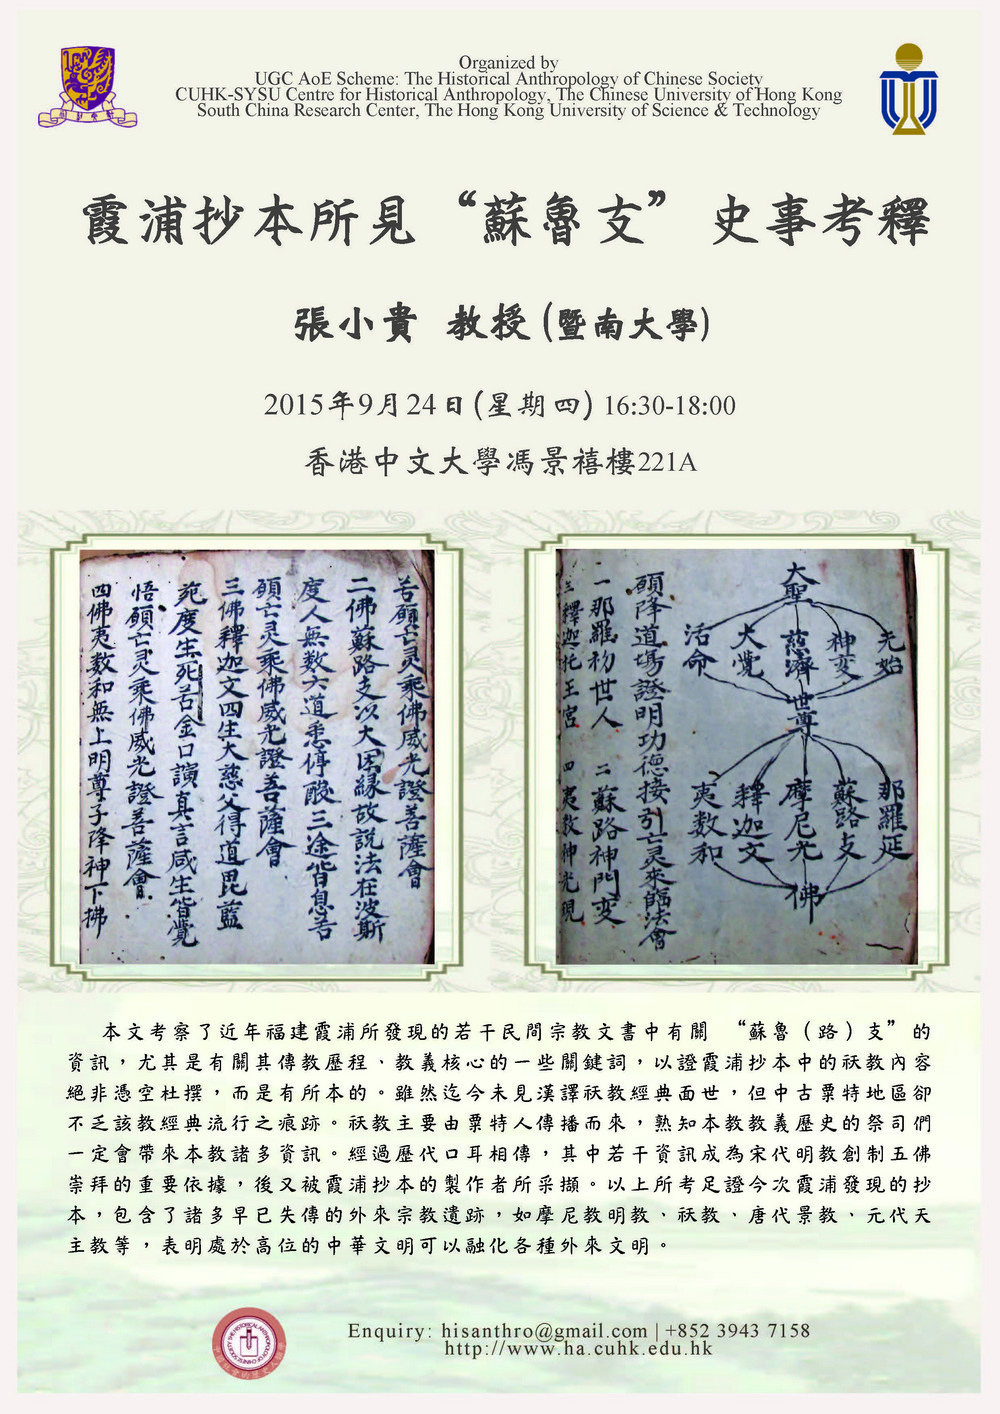 Organized by
UGC AoE Scheme: The Historical Anthropology of Chinese Society
CUHK-SYSU Centre for Historical Anthropology, The Chinese University of Hong Kong
South China Research Center, The Hong Kong University of Science & Technology
霞浦抄本所見“蘇魯支”史事考釋
張小貴 教授(暨南大學)
2015年9月24日(星期四) 16:30-18:00
香港中文大學馮景禧樓221A
若願亡灵乘佛威光證菩薩會
二佛蘇路支以大因緣故說法在波斯
度人無数六道悉停酸三途皆息苦
願亡灵乘佛威光證菩薩會
三佛釋迦文四生大慈父得道毘藍
苑度生死苦金口演真言咸生皆覺
悟願亡灵乘佛威光證菩薩會
四佛夷数和無上明尊子降神下拂
大聖
元始
神变
慈濟
大覺
活命
世尊
那羅延
蘇路支
摩尼光
釋迦文
夷数和
佛
願降道場證明功德接引亡灵來臨法會
一那羅初世人 二蘇路神門变
三釋迦托王宮 四夷数神光現
本文考察了近年福建霞浦所發現的若干民間宗教文書中有關 “蘇魯(路)支”的
資訊，尤其是有關其傳教歷程、教義核心的一些關鍵詞，以證霞浦抄本中的祆教內容
絕非憑空杜撰，而是有所本的。雖然迄今未見漢譯祆教經典面世，但中古粟特地區卻
不乏該教經典流行之痕跡。祆教主要由粟特人傳播而來，熟知本教教義歷史的祭司們
一定會帶來本教諸多資訊。經過歷代口耳相傳，其中若干資訊成為宋代明教創制五佛
崇拜的重要依據，後又被霞浦抄本的製作者所采擷。以上所考足證今次霞浦發現的抄
本，包含了諸多早已失傳的外來宗教遺跡，如摩尼教明教、祆教、唐代景教、元代天
主教等，表明處於高位的中華文明可以融化各種外來文明。
Enquiry: hisanthro@gmail.com | +852 3943 7158
http://www.ha.cuhk.edu.hk